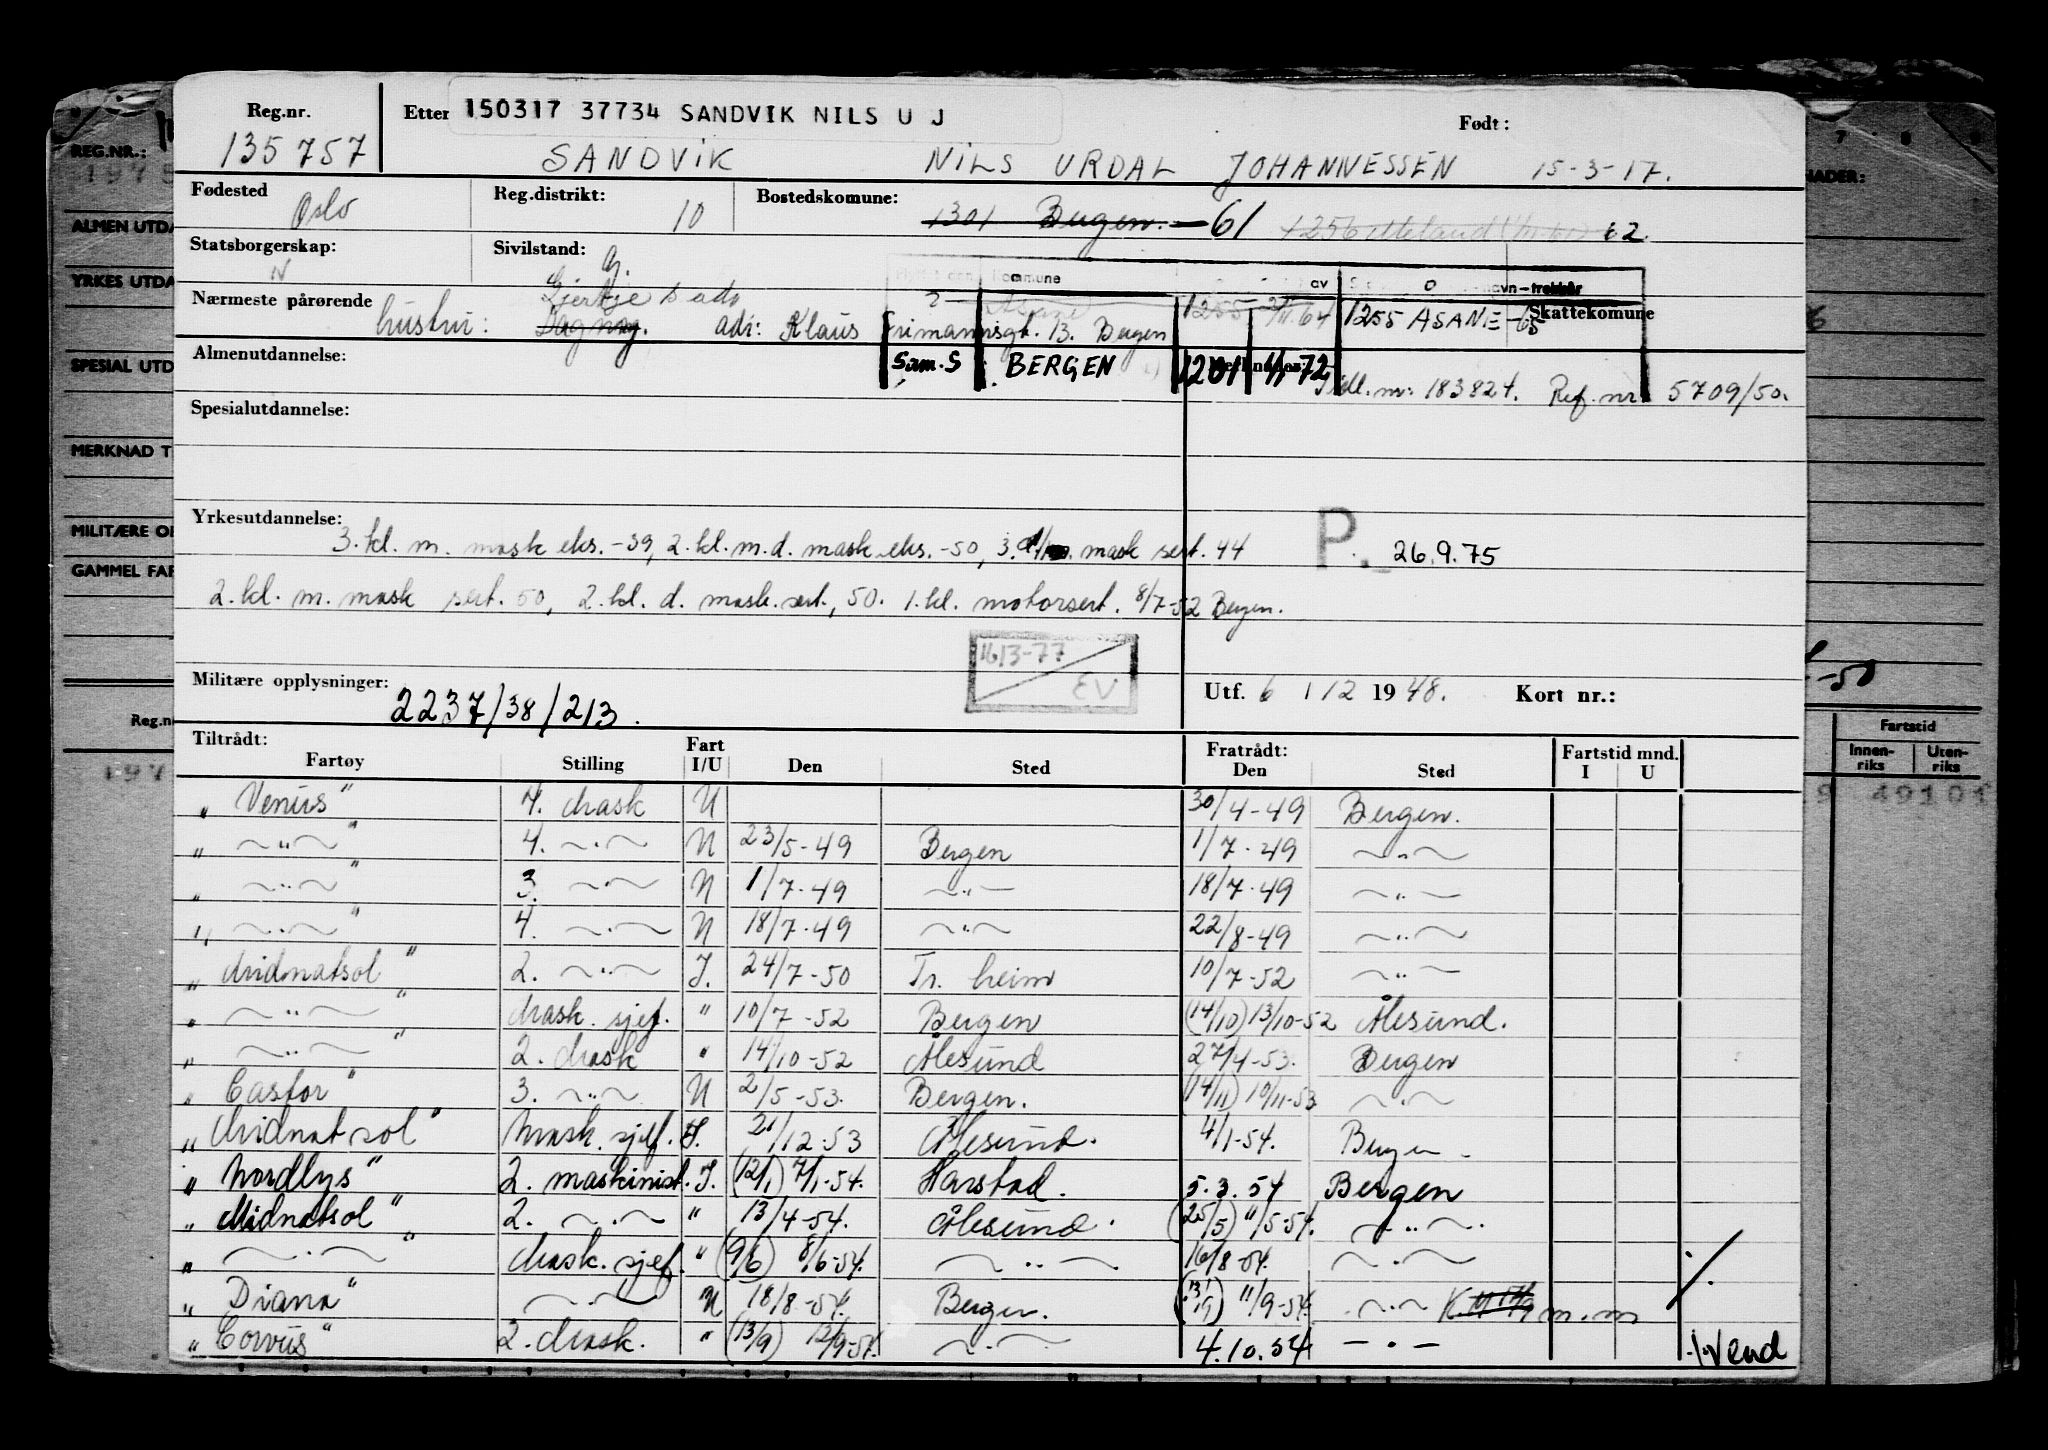 Reg.nr. Etter 150317 37734 SANDVIK NILS U J Født:
135757 SANDVIK NILS URDAL JOHANNESSEN 15-3-17.
Fødested Oslo Reg.distrikt: 10 Bostedskommune: 1301 Bergen. -61 62
Statsborgerskap: N Sivilstand: G.
Nærmeste pårørende hustru: Dagny. adr: Klaus Frimannsgt. 13. Bergen 1255 ÅSANE -65 Skattekomune
Almenutdannelse: Sam.S BERGEN 1201 1/1-72
183824. Ref. nr. 5709/50.
Spesialutdannelse:
Yrkesutdannelse: 3.kl. m. mask eks. -39, 2.kl.m.d. mask.eks. -50, 3. mask sert. 44 P. 26.9.75
2.kl. m. mask sert. 50, 2.kl. d. mask.sert., 50. 1.kl. motorsert. 8/7-52 Bergen.
16/3-77 EV
Militære opplysninger: 2237/38/213. Utf. 6 / 12 1948. Kort nr.:
Tiltrådt: Fratrådt: Fartstid mnd.
Fartøy Stilling Fart I/U Den Sted Den Sted I U
„ Venus" 4. Mask U 30/4-49 Bergen.
„ —"— " 4. —"— U 23/5-49 Bergen 1/7-49 —"—
„ —"— " 3. —"— U 1/7-49 —"— 18/7-49 —"—
„ —"— " 4. —"— U 18/7-49 —"— 22/8-49 —"—
„ Midnatsol" 2. —"— I. 24/7-50 Tr.heim 10/7-52 —"—
„ —"— " Mask. sjef. " 10/7-52 Bergen (14/10) 13/10-52 Ålesund.
„ —"— " 2. Mask " 14/10-52 Ålesund 27/4-53. Bergen
„ Castor" 3. —"— U 2/5-53. Bergen. (14/11) 10/11-53 —"—
„ Midnatsol" Mask. sjef. I. 21/12-53 Ålesund. 4/1-54. Bergen
„ Nordlys" 2. maskinist. I. (12/1) 7/1-54. Harstad. 5.3.54 Bergen
„ Midnatsol" 2. —"— " 13/4-54. Ålesund. (25/5) 11/5-54. —"—
„ —"— " Mask. sjef. " (9/6) 8/6-54. —"— 16/8-54. —"—
„ Diana" —"— U 18/8-54. Bergen. 11/9-54. —"— m.m
„ Corvus" 2. Mask. " (13/9) 12/9-54. —"— 4.10.54 —"— ./. Vend
REG.NR.:
ALMEN UTDA
YRKES UTDA
SPESIAL UTD
MERKNAD T
MILITÆRE OP
GAMMEL FAR
Reg.n
Fartstid
Innen-riks Uten-riks
49101